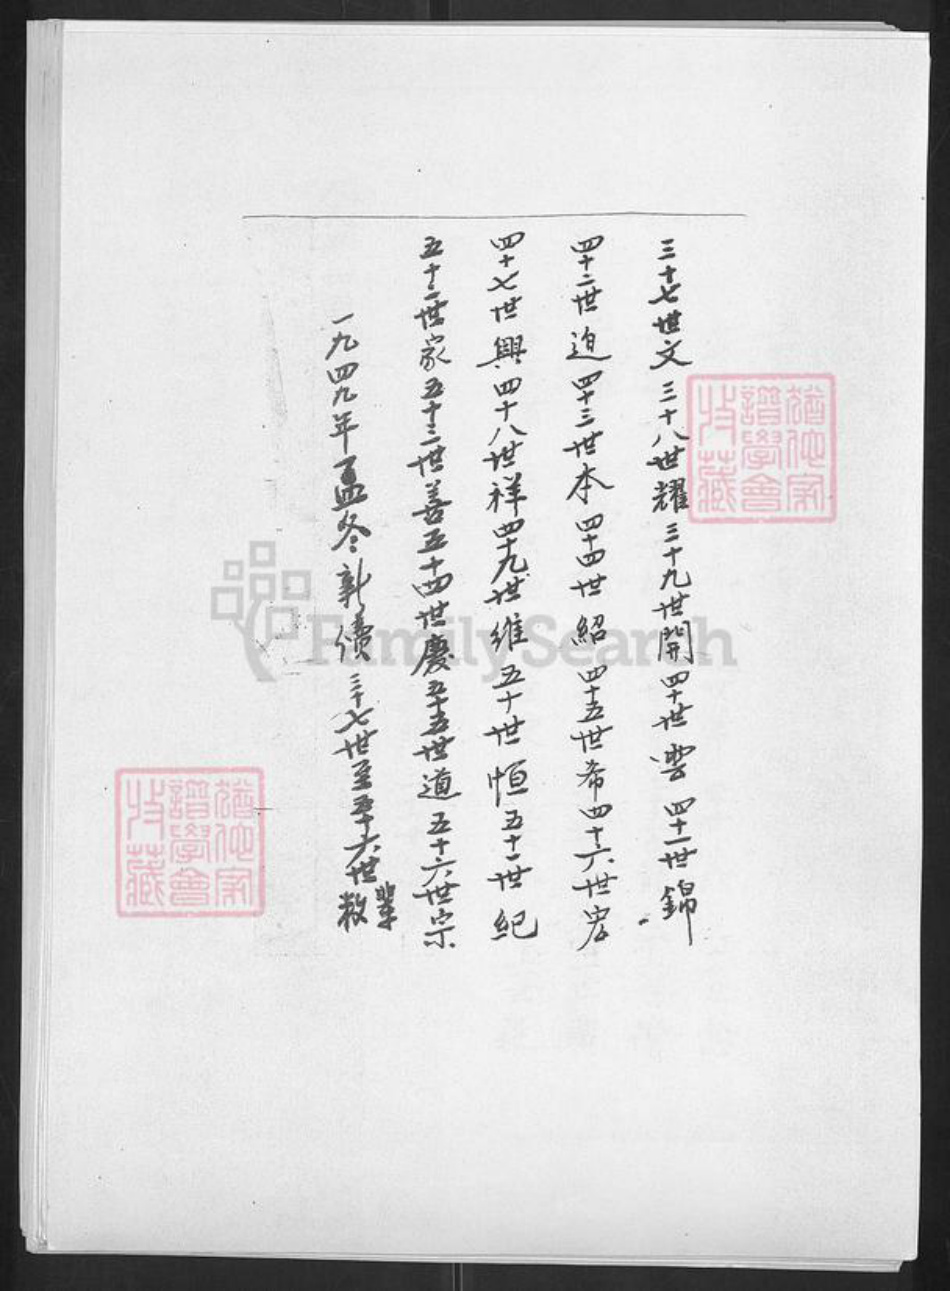 三十七世文三十八世耀三十九世開四十世雲四十一世錦
四十二世迫四十三世本四十四世紹四十五世希四十六世宏
四十七世興四十八世祥四十九世維五十世恒五十一世紀
五十二世家五十三世善五十四世慶五十五世道五十六世宗
一九四九年孟冬新續三十七世至五十六世輩敘
譜學會
收藏
譜學會
收藏
FamilySearch